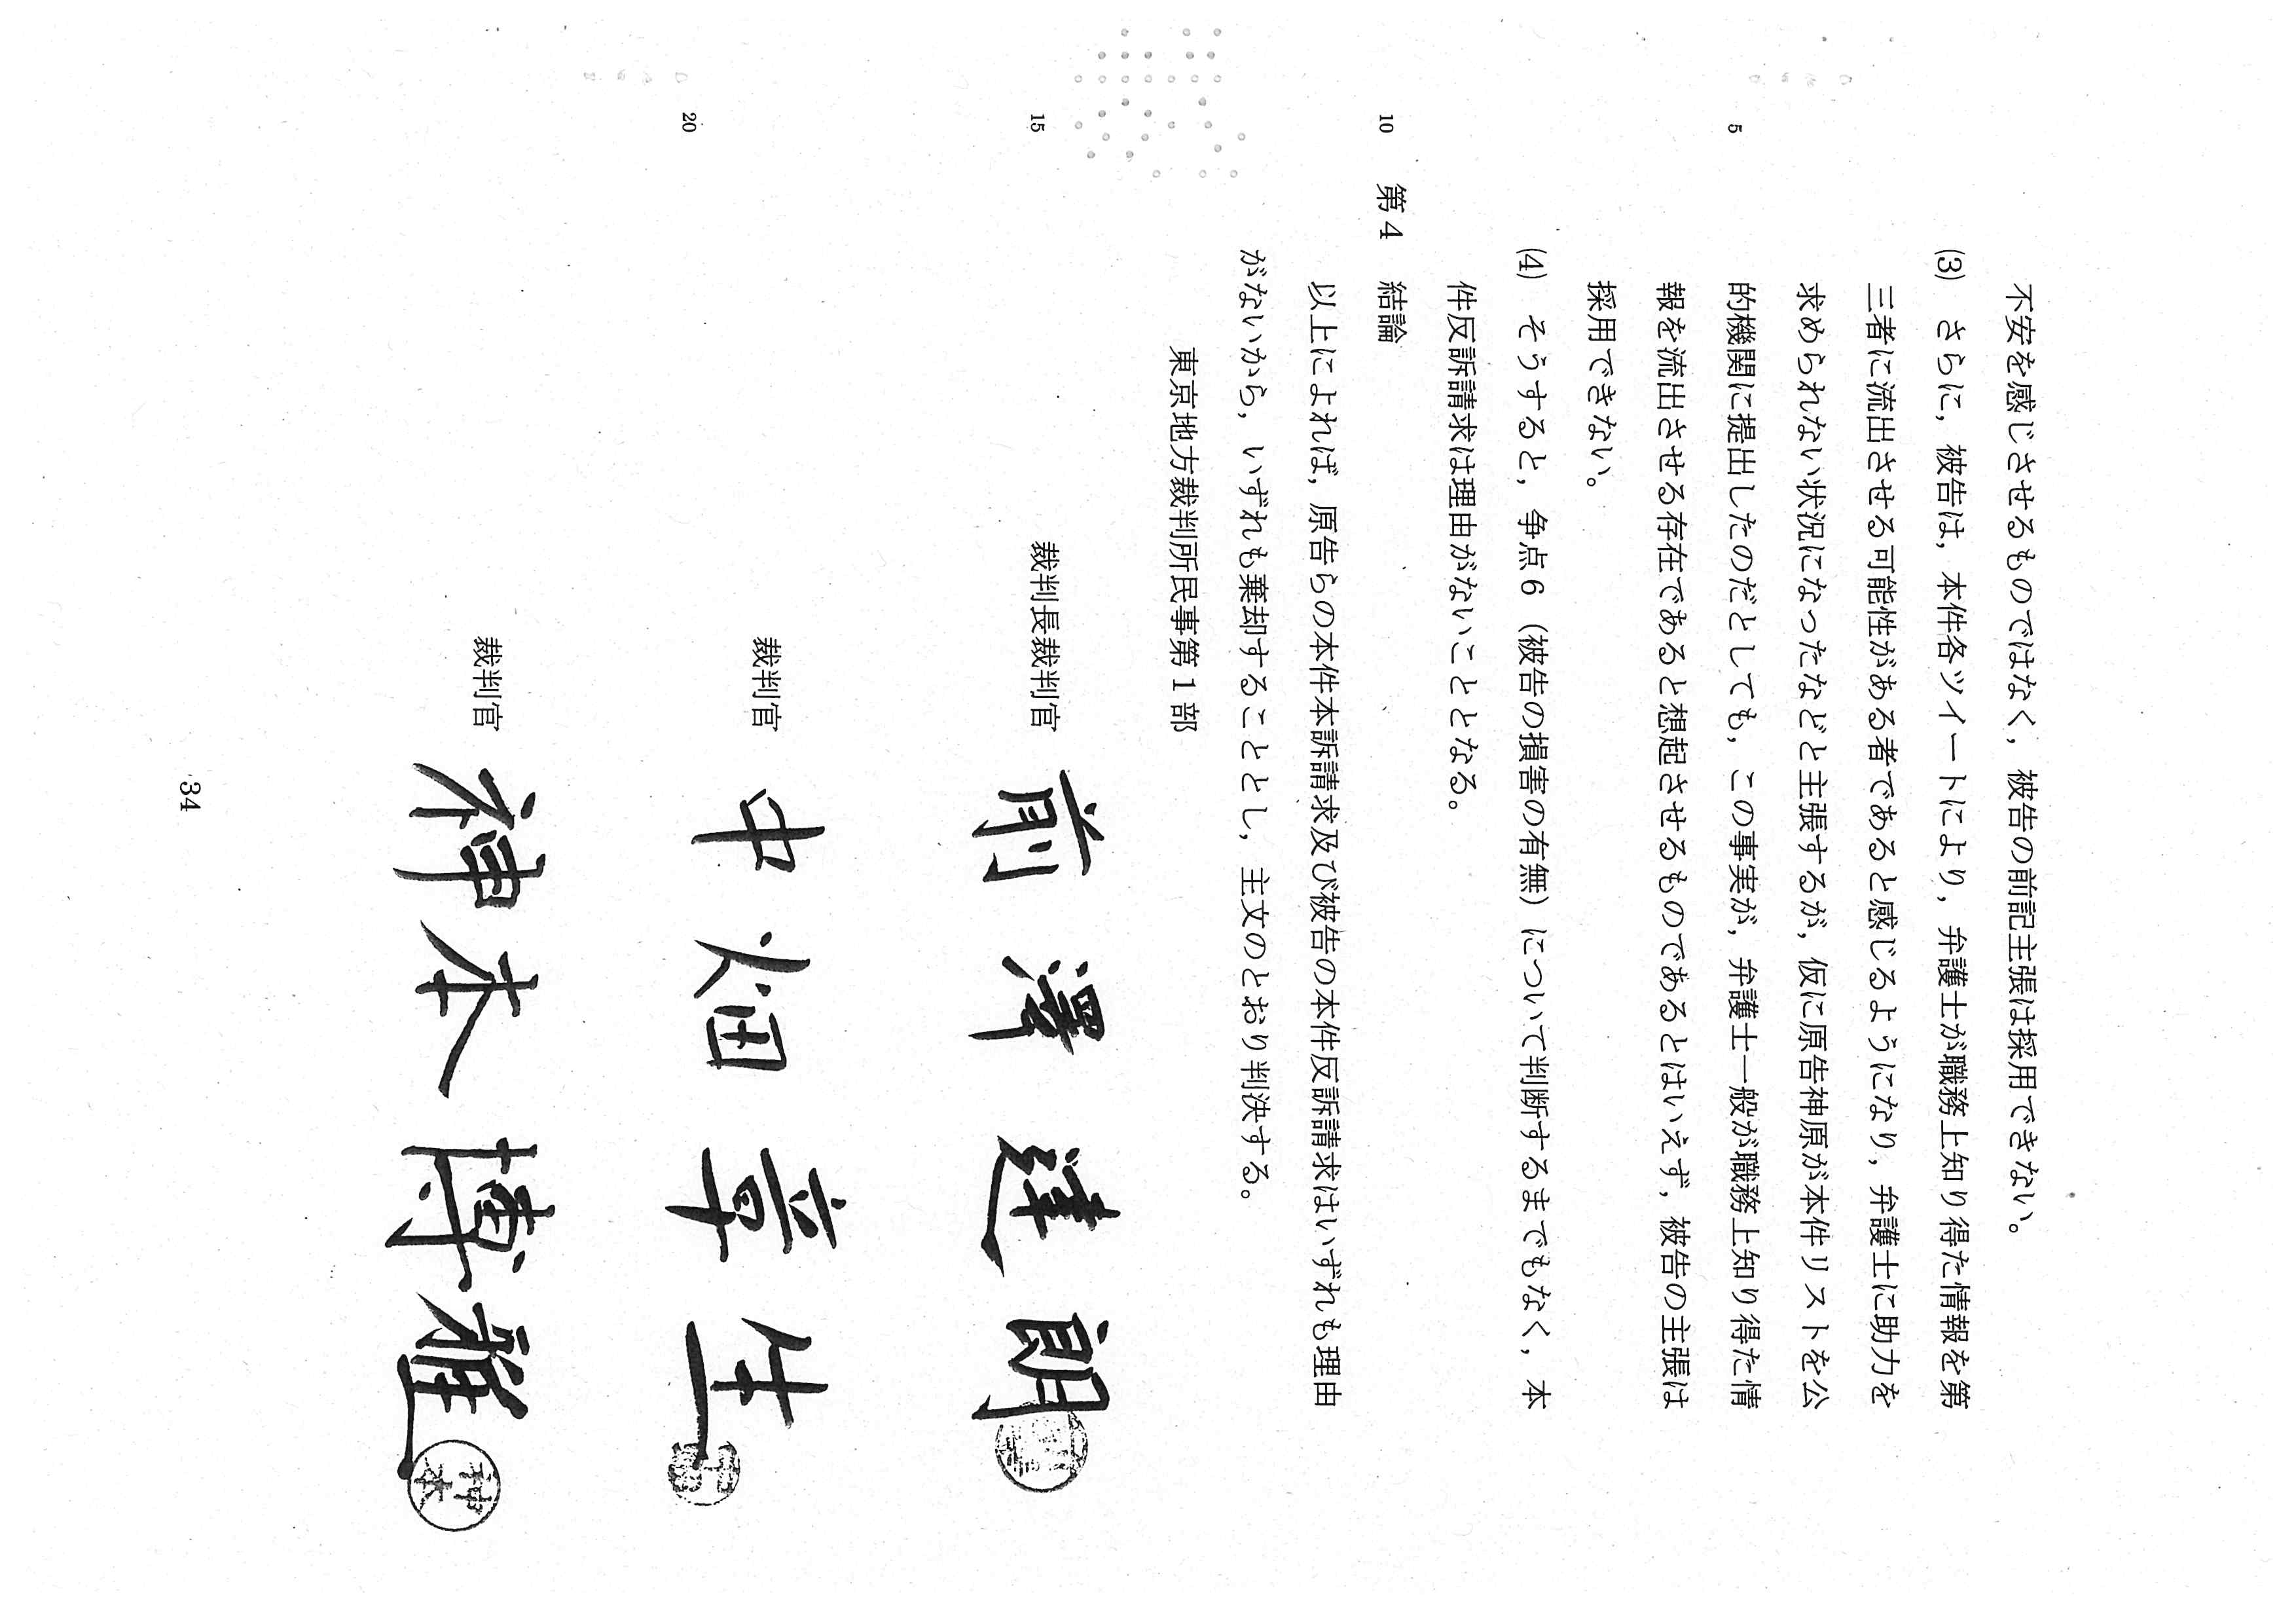 不安を感じさせるものではなく，被告の前記主張は採用できない。
(3) さらに，被告は，本件各ツイートにより，弁護士が職務上知り得た情報を第
三者に流出させる可能性がある者であると感じるようになり，弁護士に助力を
求められない状況になったなどと主張するが，仮に原告神原が本件リストを公
5 的機関に提出したのだとしても，この事実が，弁護士一般が職務上知り得た情
報を流出させる存在であると想起させるものであるとはいえず，被告の主張は
採用できない。
(4) そうすると，争点６（被告の損害の有無）について判断するまでもなく，本
件反訴請求は理由がないこととなる。
10 第４ 結論
以上によれば，原告らの本件本訴請求及び被告の本件反訴請求はいずれも理由
がないから，いずれも棄却することとし，主文のとおり判決する。
東京地方裁判所民事第１部
15 裁判長裁判官 前澤達朗
裁判官 中畑章生
20
裁判官 神本博雅 神本
34